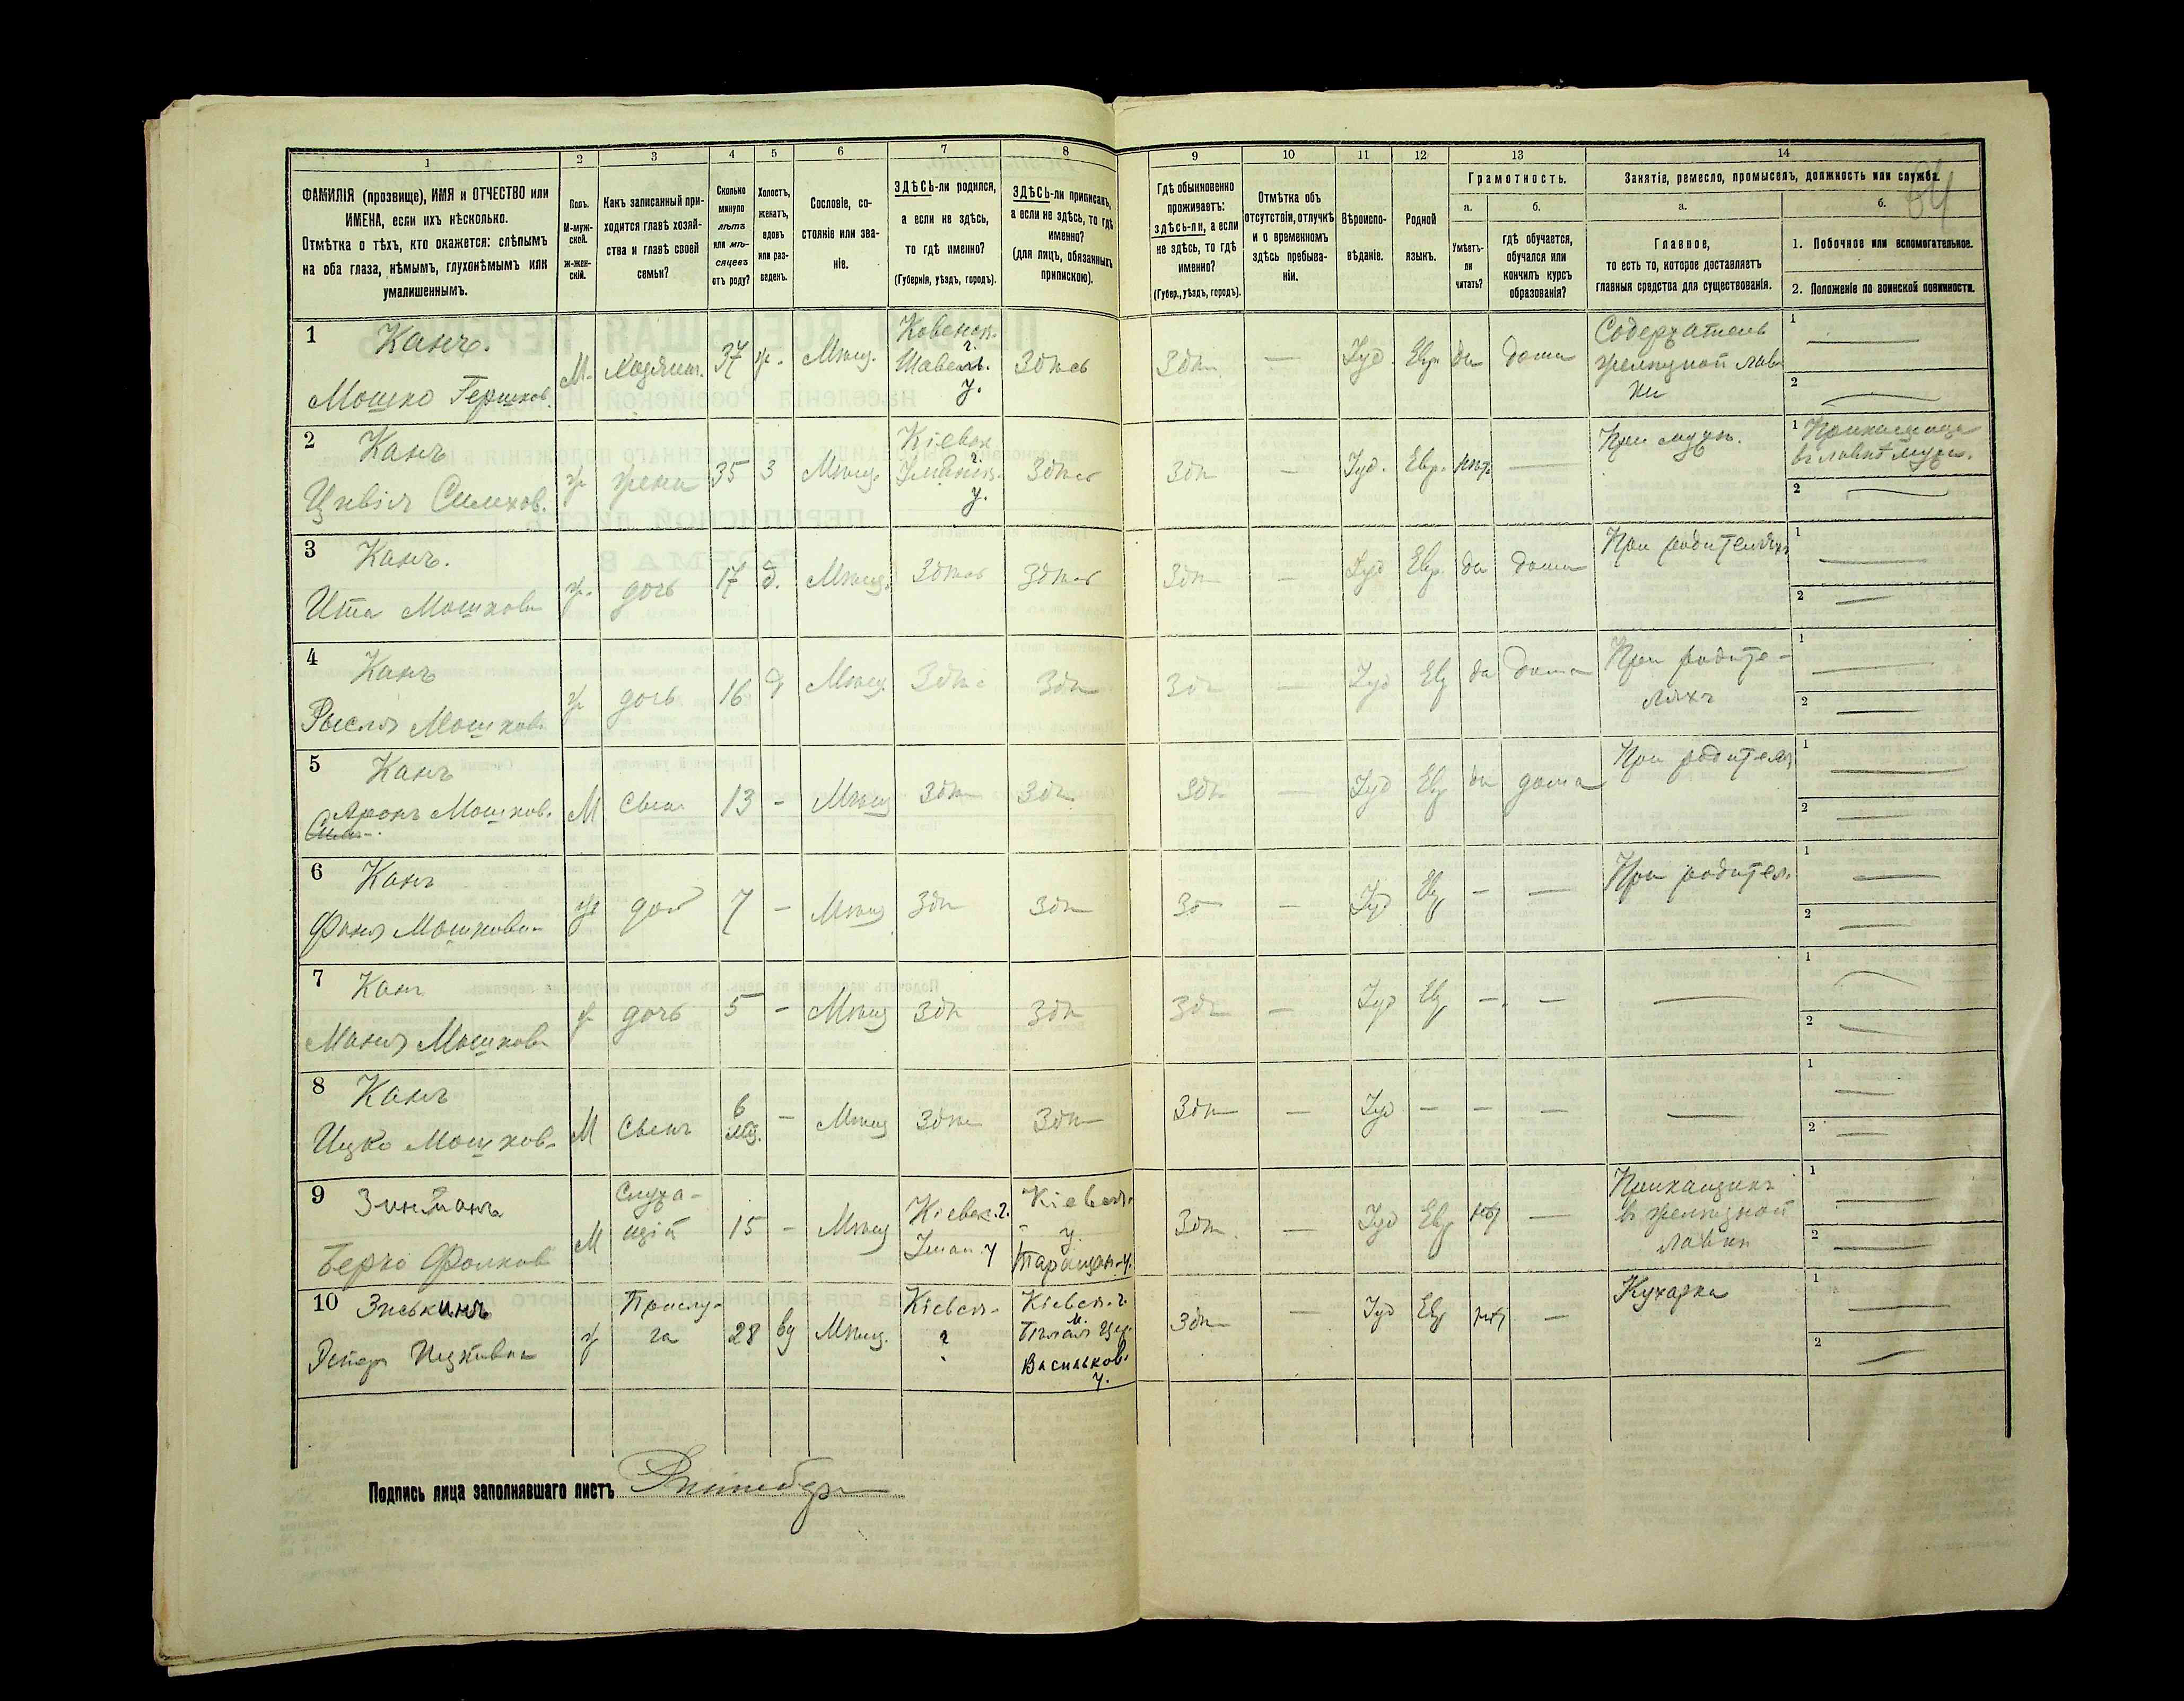 1 2 3 4 5 6 7 8 9 10 11 12 13 14
ФАМИЛІЯ (прозвище), ИМЯ и ОТЧЕСТВО или ИМЕНА, если ихъ нѣсколько.
Отмѣтка о тѣхъ, кто окажется: слѣпымъ на оба глаза, нѣмымъ, глухонѣмымъ или умалишеннымъ.
Полъ. М-мужской. Ж-женскій.
Какъ записанный приходится главѣ хозяйства и главѣ своей семьи?
Сколько минуло лѣтъ или мѣсяцевъ отъ роду?
Холостъ, женатъ, вдовъ или разведенъ.
Сословіе, состояніе или званіе.
ЗДѢСЬ-ли родился, а если не здѣсь, то гдѣ именно? (Губернія, уѣздъ, городъ).
ЗДѢСЬ-ли приписанъ, а если не здѣсь, то гдѣ именно? (для лицъ, обязанныхъ припискою).
Гдѣ обыкновенно проживаетъ: здѣсь-ли, а если не здѣсь, то гдѣ именно? (Губер., уѣздъ, городъ).
Отмѣтка объ отсутствіи, отлучкѣ и о временномъ здѣсь пребываніи.
Вѣроисповѣданіе.
Родной языкъ.
Грамотность.
а. Умѣетъ-ли читать?
б. гдѣ обучается, обучался или кончилъ курсъ образованія?
Занятіе, ремесло, промыселъ, должность или служба.
а. Главное, то есть то, которое доставляетъ главныя средства для существованія.
б. 1. Побочное или вспомогательное.
2. Положеніе по воинской повинности.
64
1 Канъ. Мошко Гершков. М. хозяин. 37 ж. Мѣщ. Ковенск. г. Шавельс. у. Здѣсь Здѣ — Іуд. Евр. да дома Содержатель желѣзной лавки 1 — 2 —
2 Канъ Цивія Симхов. ж жена 35 З Мѣщ. Кіевск г. Уманск. у. Здѣсь Здѣ — Іуд. Евр. нѣт — При мужѣ. 1 Прикащица въ лавкѣ мужа. 2 —
3 Канъ. Ита Мошкова ж. дочь 17 д. Мѣщ. Здѣсь Здѣсь Здѣ — Іуд Евр. да дома При родителяхъ 1 — 2 —
4 Канъ Рысля Мошков. ж дочь 16 д Мѣщ. Здѣс Здѣ Здѣ — Іуд Евр да дома При родителяхъ 1 — 2 —
5 Канъ Аронъ Мошков. М сынъ 13 - Мѣщ Здѣ Здѣ Здѣ — Іуд Евр да дома При родител 1 — 2 —
6 Канъ Фаня Мошкова ж доч 7 — Мѣщ Здѣ Здѣ Зд — Іуд Евр — — При родител. 1 — 2 —
7 Канъ Маня Мошкова ж дочь 5 - Мѣщ Здѣ Здѣ Здѣ — Іуд Евр — — — 1 — 2 —
8 Канъ Ицко Мошков. М сынъ 6 мѣ. - Мѣщ Здѣ Здѣ Здѣ — Іуд — — — — 1 — 2 —
9 Берко Фолков М Служащій 15 - Мѣщ Кіевск. г. Уман. у Кіевск. Таращан. у. Здѣ. — Іуд Евр нѣт — Прикащикъ въ желѣзной лавки 1 — 2 —
10 Зиськинъ ж Прислуга 28 вд Мѣщ. Кіевск. г. Кіевск. г. м. Бѣлая Цер. Васильков. у. Здѣ — Іуд Евр нѣт — Кухарка 1 — 2 —
Подпись лица заполнявшаго листъ